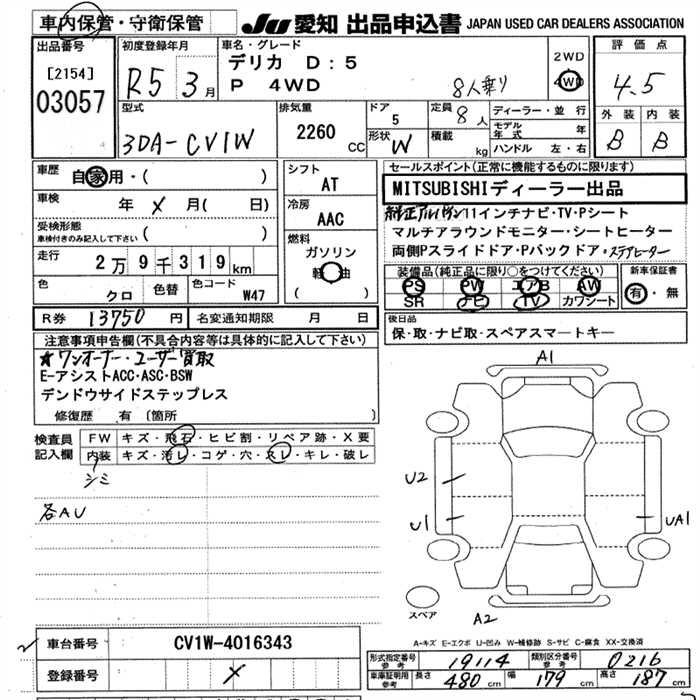 車内保管・守衛保管 JU 愛知 出品申込書 JAPAN USED CAR DEALERS ASSOCIATION
出品番号 [2154] 03057
初度登録年月 R5 3月
車名・グレード デリカ D:5
P 4WD 8人乗り
2WD
4WD
評価点 4.5
外装 内装
B B
型式 3DA-CV1W
排気量 2260 CC
ドア 5
形状 W
定員 8人
積載 kg
ディーラー・並行
モデル年式 年
ハンドル 左・右
車歴 自家用・( )
車検 年 × 月( 日)
受検形態
車検付きのみ記入して下さい ( )
走行 2万9千319km
色 クロ 色替 色コード W47
シフト AT
冷房 AAC
燃料 ガソリン
軽油
( )
セールスポイント(正常に機能するものに限ります)
MITSUBISHIディーラー出品
純正アルパイン11インチナビ・TV・Pシート
マルチアラウンドモニター・シートヒーター
両側Pスライドドア・Pバックドア・ステアヒーター
装備品(純正品に限り○をつけてください)
PS PW エアB AW
SR ナビ TV カワシート
新車保証書
有・無
R券 13750円 名変通知期限 月 日
後日品
保・取・ナビ取・スペアスマートキー
注意事項申告欄(不具合内容等は具体的に記入して下さい)
★ワンオーナー・ユーザー買取
E-アシストACC・ASC・BSW
デンドウサイドステップレス
修復歴 有 (箇所 )
検査員記入欄
FW キズ・飛石・ヒビ割・リペア跡・X要
内装 キズ・汚レ・コゲ・穴・スレ・キレ・破レ
シミ
各AU
A1
U2
U1
UA1
A2
スペア
A-キズ E-エクボ U-凹み W-補修跡 S-サビ C-腐食 XX-交換済
車台番号 CV1W-4016343
登録番号 ×
形式指定番号 参考 19114 類別区分番号 参考 0216
車庫証明用 参考 長さ 480cm 幅 179cm 高さ 187cm